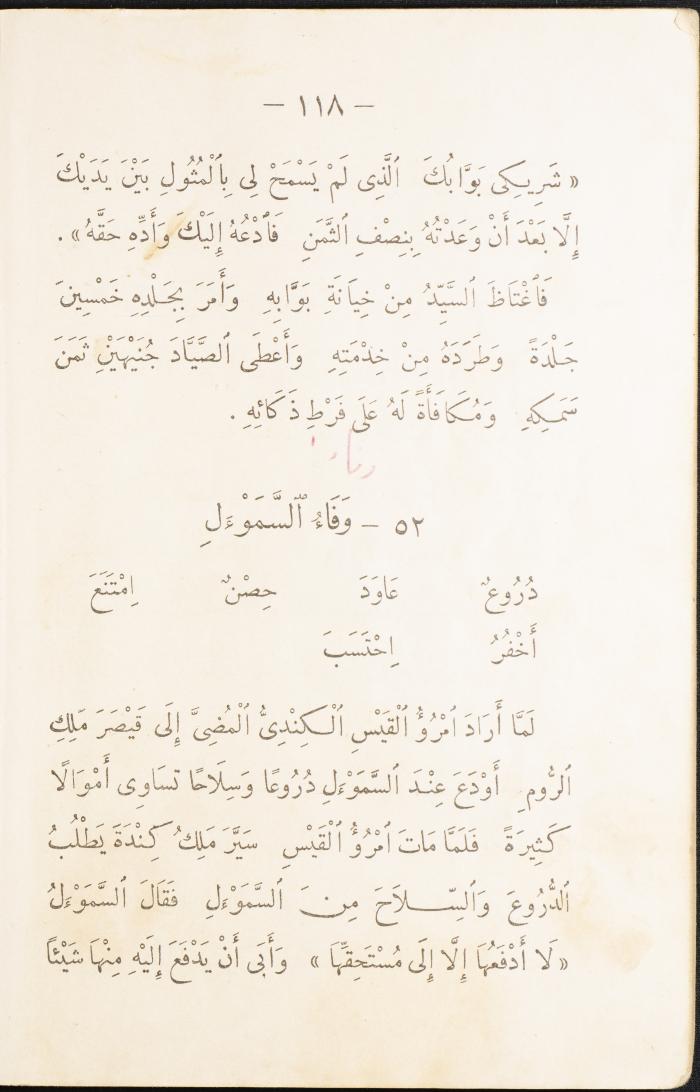 — ١١٨ —
« شَرِيكِى بَوَّابُكَ ٱلَّذِى لَمْ يَسْمَحْ لِى بِٱلْمُثُولِ بَيْنَ يَدَيْكَ
إِلَّا بَعْدَ أَنْ وَعَدْتُهُ بِنِصْفِ ٱلثَّمَنِ فَٱدْعُهُ إِلَيْكَ وَأَدِّهِ حَقَّهُ » .
فَٱغْتَاظَ ٱلسَّيِّدُ مِنْ خِيَانَةِ بَوَّابِهِ وَأَمَرَ بِجَلْدِهِ خَمْسِينَ
جَلْدَةً وَطَرَدَهُ مِنْ خِدْمَتِهِ وَأَعْطَى ٱلصَّيَّادَ جُنَيْهَيْنِ ثَمَنَ
سَمَكِهِ وَمُكَافَأَةً لَهُ عَلَى فَرْطِ ذَكَائِهِ .
٥٢ — وَفَاءُ ٱلسَّمَوْءَلِ
دُرُوعٌ عَاوَدَ حِصْنٌ اِمْتَنَعَ
أَخْفُرُ اِحْتَسَبَ
لَمَّا أَرَادَ ٱمْرُؤُ ٱلْقَيْسِ ٱلْكِنْدِىُّ ٱلْمُضِىَّ إِلَى قَيْصَرَ مَلِكِ
ٱلرُّومِ أَوْدَعَ عِنْدَ ٱلسَّمَوْءَلِ دُرُوعًا وَسِلَاحًا تُسَاوِى أَمْوَالًا
كَثِيرَةً فَلَمَّا مَاتَ ٱمْرُؤُ ٱلْقَيْسِ سَيَّرَ مَلِكُ كِنْدَةَ يَطْلُبُ
ٱلدُّرُوعَ وَٱلسِّلَاحَ مِنَ ٱلسَّمَوْءَلِ فَقَالَ ٱلسَّمَوْءَلُ
« لَا أَدْفَعُهَا إِلَّا إِلَى مُسْتَحِقِّهَا » وَأَبَى أَنْ يَدْفَعَ إِلَيْهِ مِنْهَا شَيْئًا